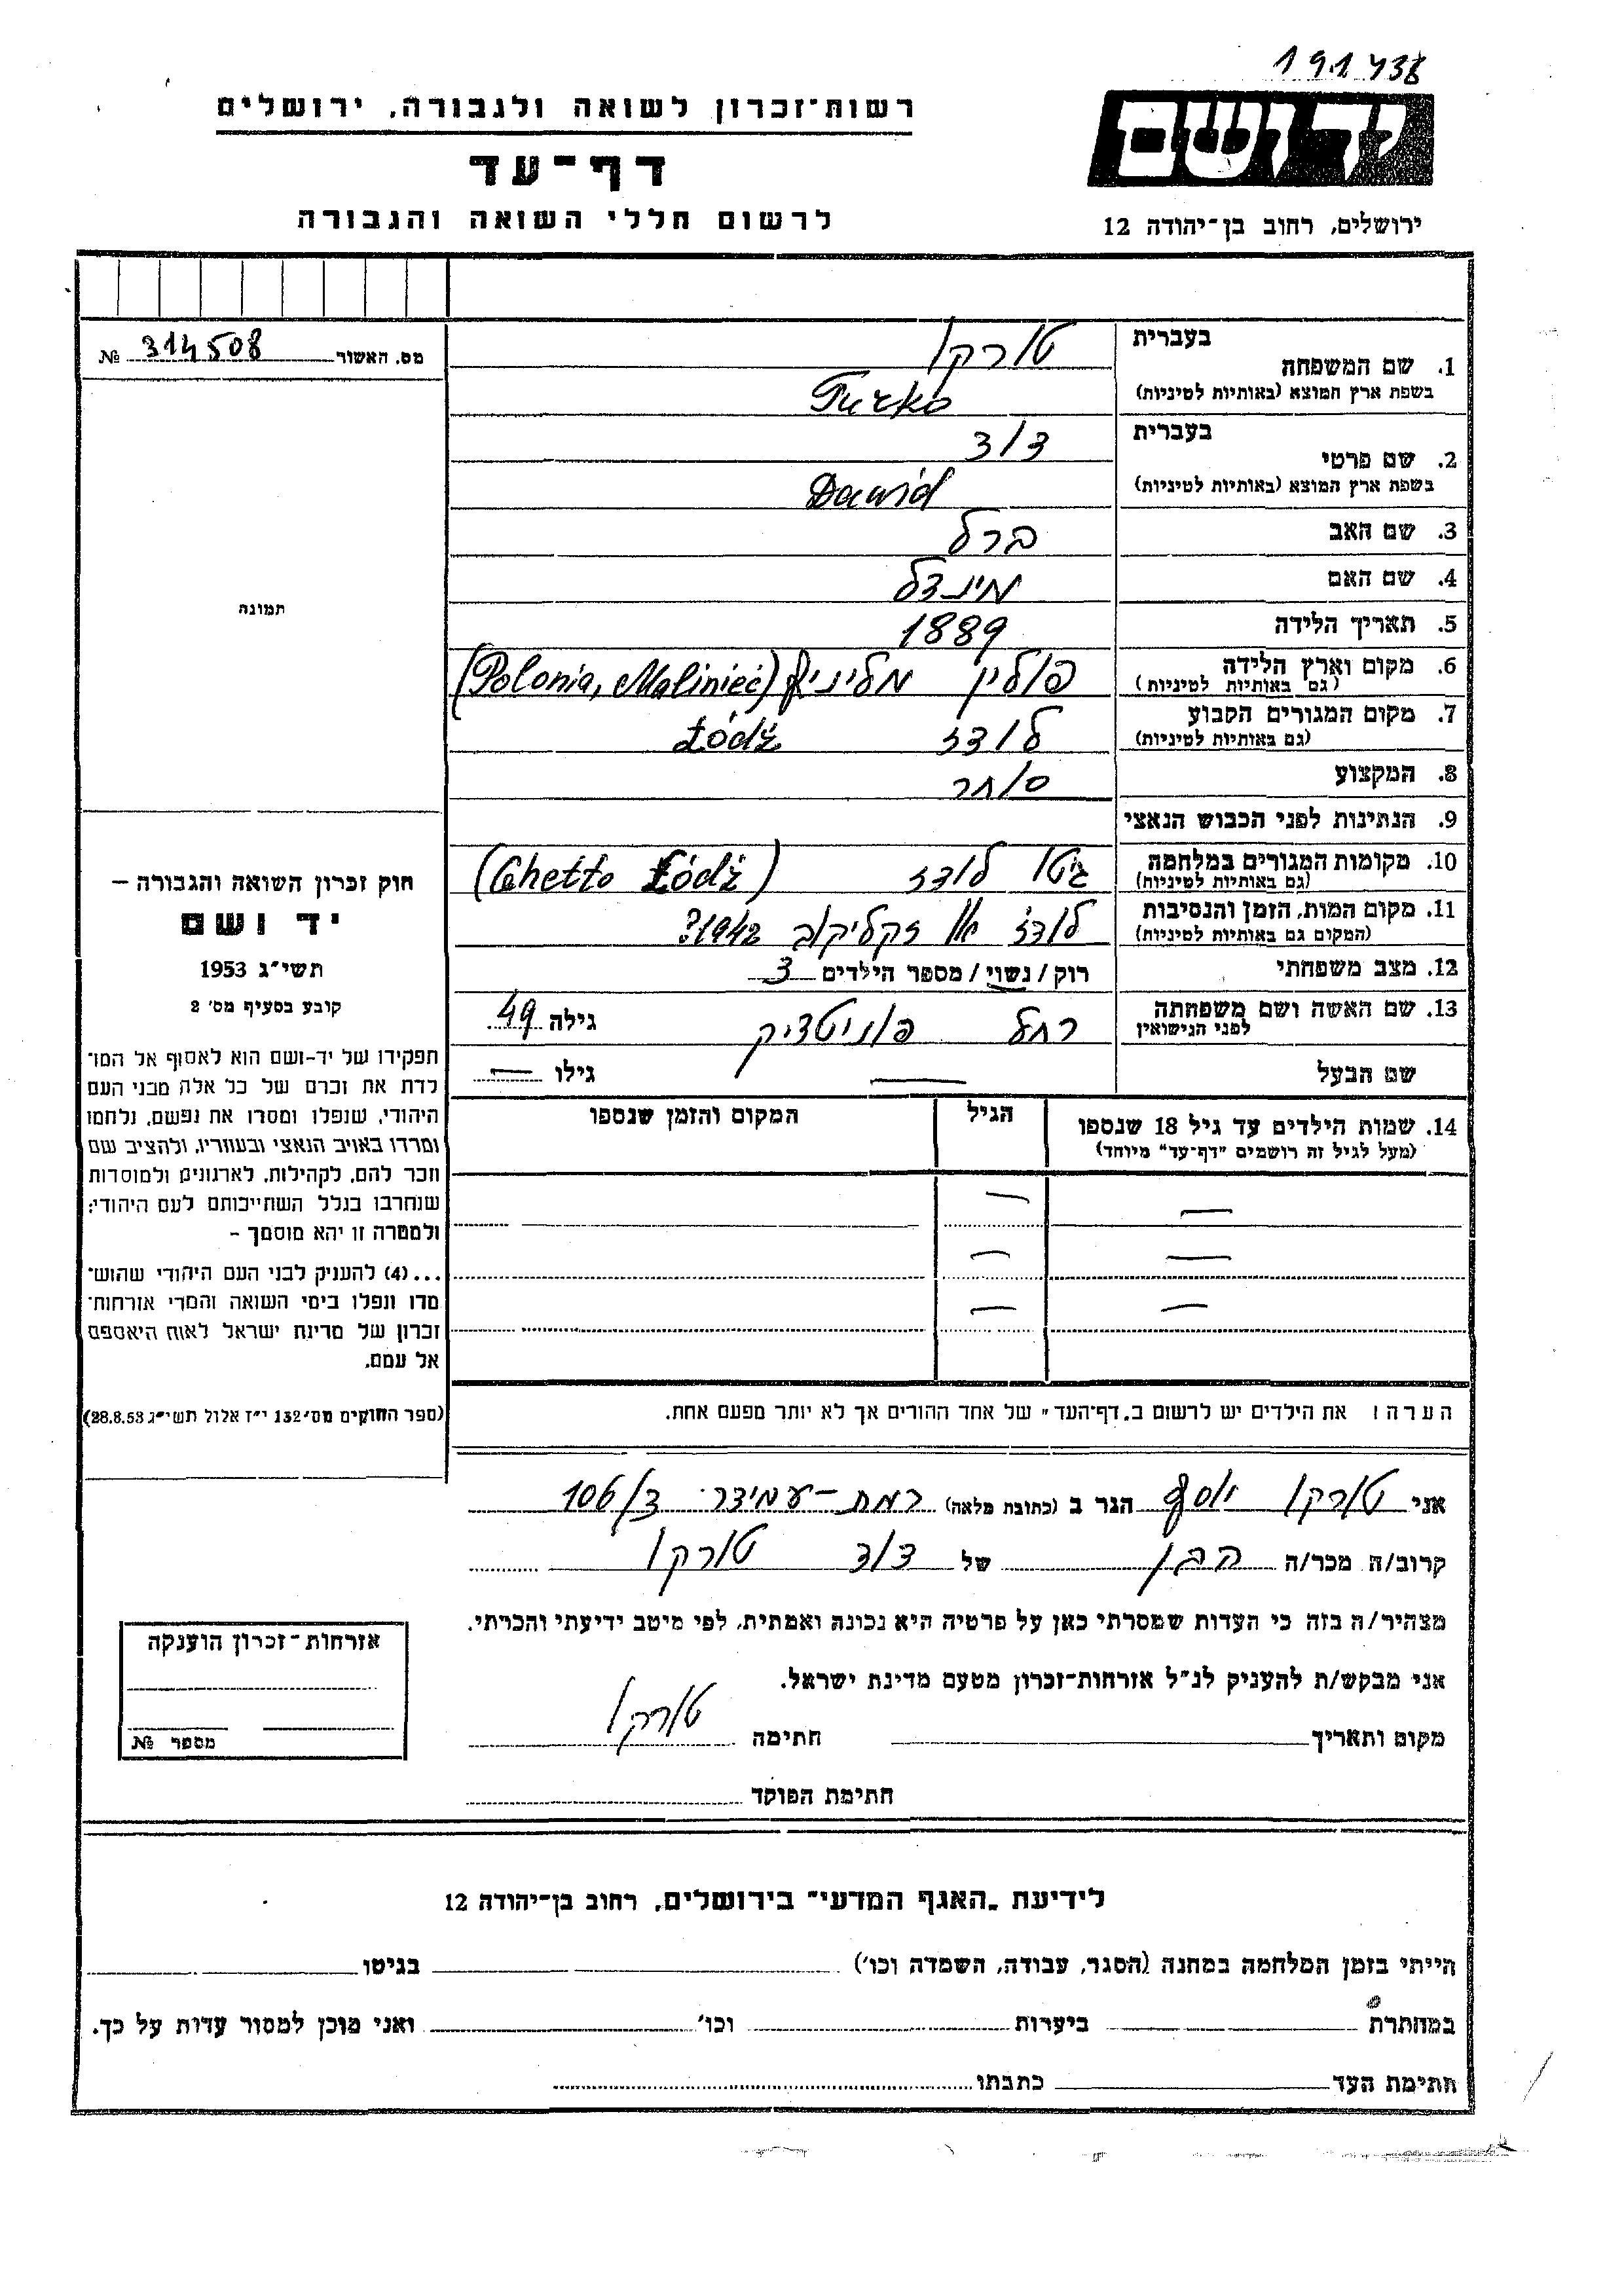 191438
יד ושם
רשות־זכרון לשואה ולגבורה, ירושלים
דף־עד
לרשום חללי השואה והגבורה
ירושלים, רחוב בן־יהודה 12
מס. האשור 314508 №
תמונה
חוק זכרון השואה והגבורה –
יד ושם
תשי״ג 1953
קובע בסעיף מס׳ 2
תפקידו של יד-ושם הוא לאסוף אל המו־
לדת את זכרם של כל אלה מבני העם
היהודי, שנפלו ומסרו את נפשם, נלחמו
ומרדו באויב הנאצי ובעוזריו, ולהציב שם
וזכר להם, לקהילות, לארגונים ולמוסדות
שנחרבו בגלל השתייכותם לעם היהודי;
ולמטרה זו יהא מוסמך –
...(4) להעניק לבני העם היהודי שהוש־
מדו ונפלו בימי השואה והמרי אזרחות־
זכרון של מדינת ישראל לאות היאספם
אל עמם.
(ספר החוקים מס׳ 132 י״ז אלול תשי״ג 28.8.53)
בעברית טורקו
1. שם המשפחה
בשפת ארץ המוצא (באותיות לטיניות) Turko
בעברית דוד
2. שם פרטי
בשפת ארץ המוצא (באותיות לטיניות) Dawid
3. שם האב ברל
4. שם האם מינדל
5. תאריך הלידה 1889
6. מקום וארץ הלידה פולין מליניץ (Polonia, Maliniec)
(גם באותיות לטיניות)
7. מקום המגורים הקבוע לודז Łódź
(גם באותיות לטיניות)
8. המקצוע סוחר
9. הנתינות לפני הכבוש הנאצי
10. מקומות המגורים במלחמה גיטו לודז (Ghetto Łódź)
(גם באותיות לטיניות)
11. מקום המות, הזמן והנסיבות לודז או זקליקוב 1942?
(המקום גם באותיות לטיניות)
12. מצב משפחתי רוק / נשוי / מספר הילדים 3
13. שם האשה ושם משפחתה רחל גילה 49
לפני הנישואין
שם הבעל — גילו —
14. שמות הילדים עד גיל 18 שנספו הגיל המקום והזמן שנספו
(מעל לגיל זה רושמים "דף־עד" מיוחד)
— —
— —
— —
הערה: את הילדים יש לרשום ב„דף־העד" של אחד ההורים אך לא יותר מפעם אחת.
אני טורקו יוסף הגר ב (כתובת מלאה) רמת-עמידר ד/106
קרוב/ה מכר/ה הבן של דוד טורקו
מצהיר/ה בזה כי העדות שמסרתי כאן על פרטיה היא נכונה ואמתית, לפי מיטב ידיעתי והכרתי.
אני מבקש/ת להעניק לנ״ל אזרחות-זכרון מטעם מדינת ישראל.
מקום ותאריך חתימה טורקו
חתימת הפוקד
אזרחות־זכרון הוענקה
מספר №
לידיעת „האגף המדעי" בירושלים, רחוב בן־יהודה 12
הייתי בזמן המלחמה במחנה (הסגר, עבודה, השמדה וכו׳) בגיטו
במחתרת ביערות וכו׳ ואני מוכן למסור עדות על כך.
חתימת העד כתבתו